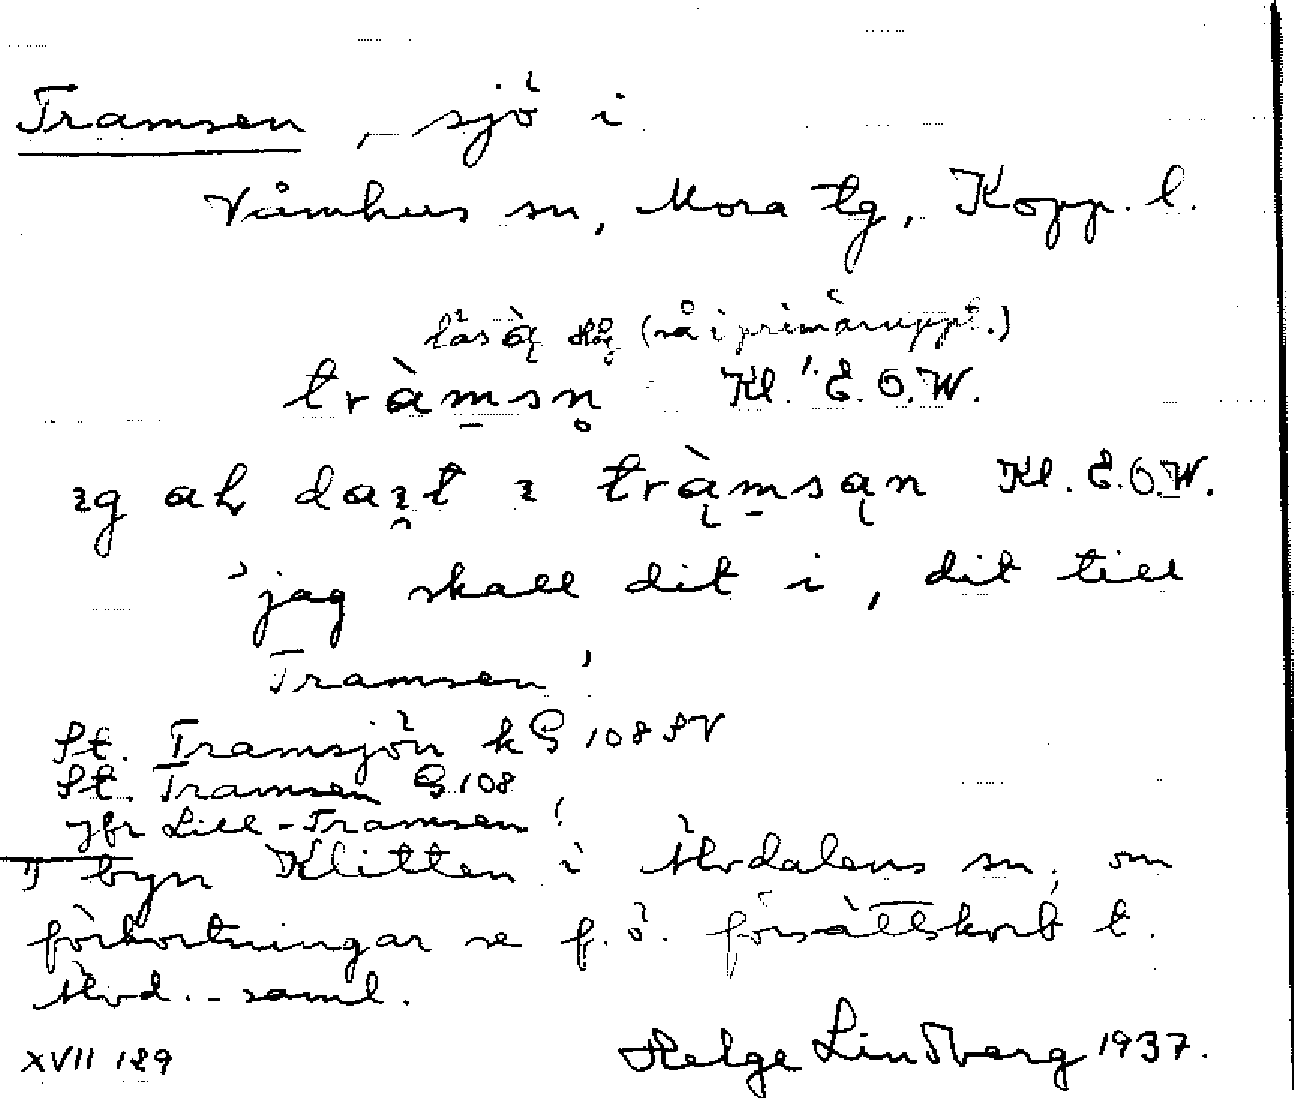 Tramsen, sjö i
Våmhus sn, Mora tg, Kopp. l.
läs ą̀ (så i primäruppt.)
tràm̱sn̥ Kl.¹⁾ E.O.W.
ɩg ah daɩ̯t ɩ trą̀m̱sąn Kl. E.O.W.
'jag skall dit i, dit till
Tramsen'
St. Tramsjön kG 108 SV
St. Tramsen G 108
Jfr Lill-Tramsen!
1) byn Klitten i Älvdalens sn; om
förkortningar se f.ö. försättskort t.
Älvd.-saml.
XVII 189 Helge Lindberg 1937.